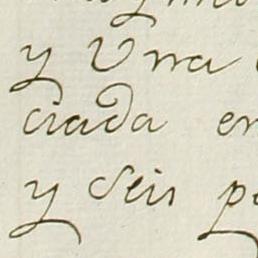 y Vna
ciada en
y Seis p